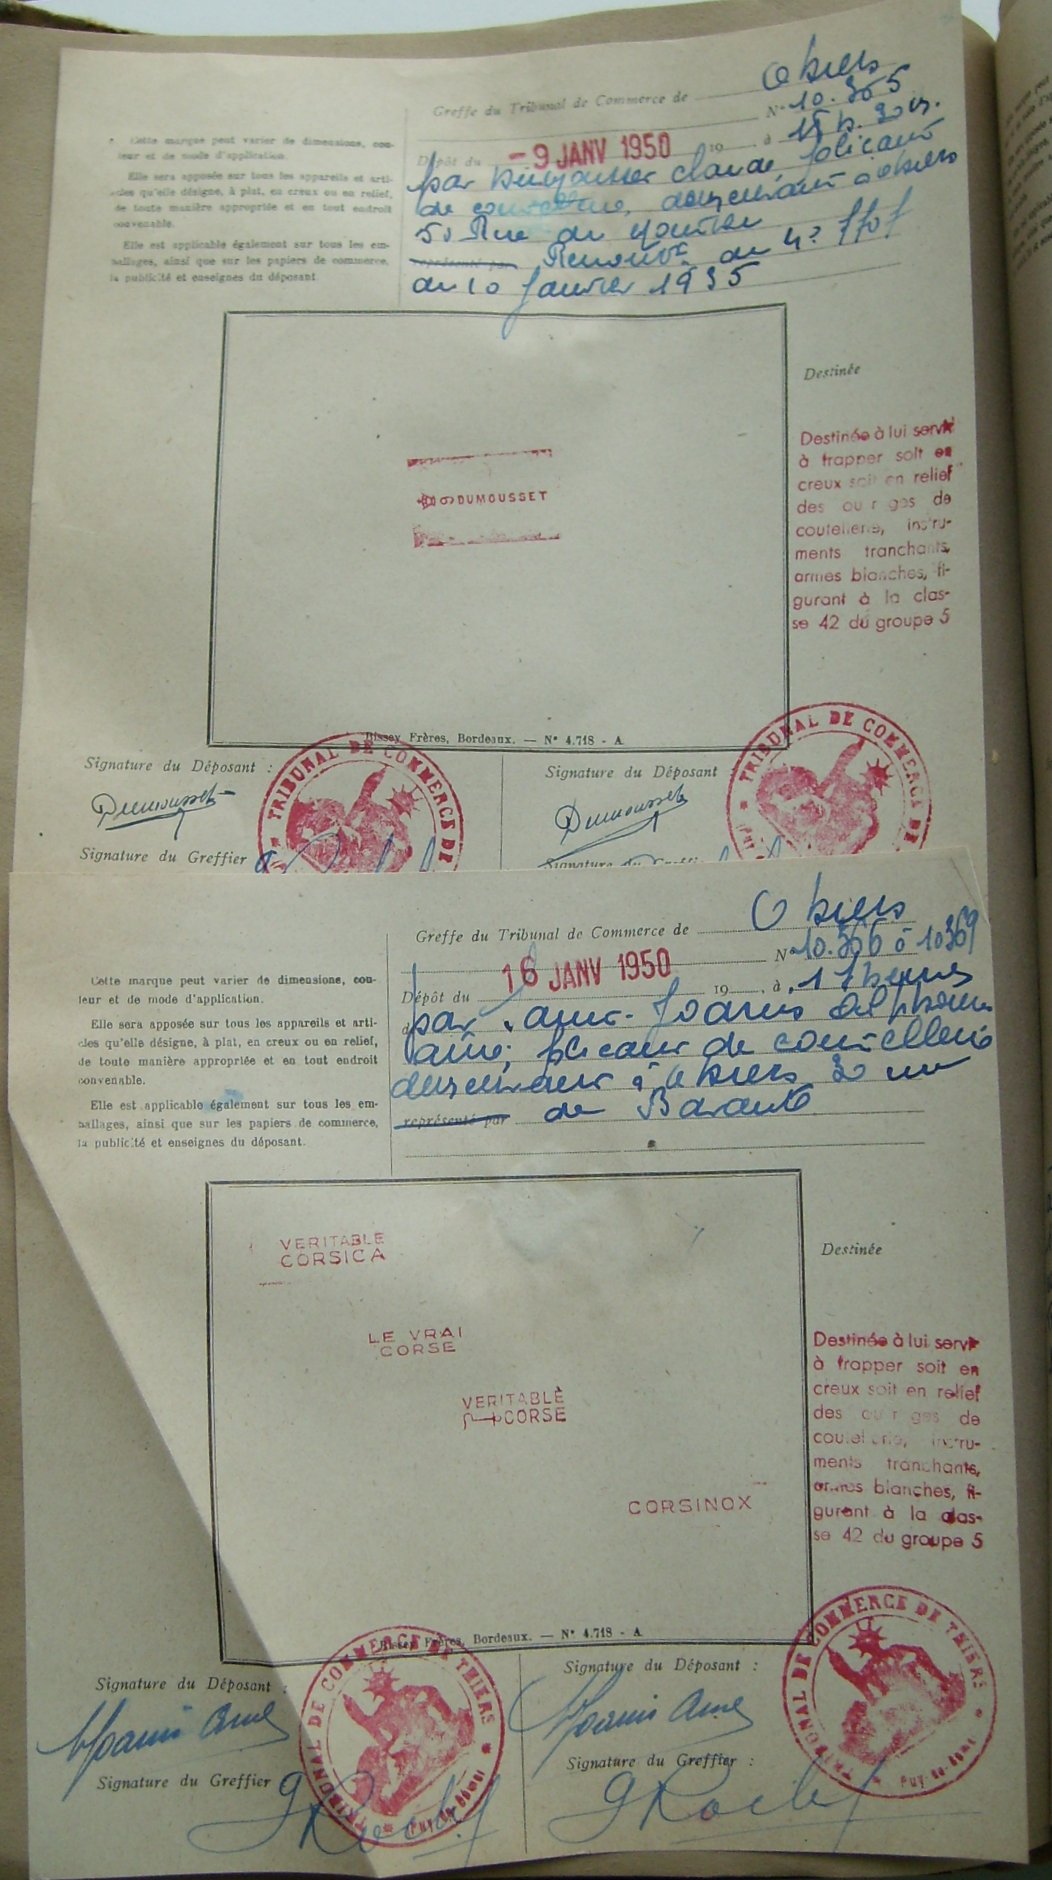 Greffe du Tribunal de Commerce de Thiers
N° 10.365
Dépôt du - 9 JANV 1950 19 à 15 h. 30 m.
par Dumousset Claude, fabricant
de coutellerie, demeurant à Thiers
50 Rue du Moutier
représenté par
du 10 Janvier 1935
Cette marque peut varier de dimensions, cou-
leur et de mode d'application.
Elle sera apposée sur tous les appareils et arti-
cles qu'elle désigne, à plat, en creux ou en relief,
de toute manière appropriée et en tout endroit
convenable.
Elle est applicable également sur tous les em-
ballages, ainsi que sur les papiers de commerce,
la publicité et enseignes du déposant.
DUMOUSSET
Destinée
Destinée à lui servir
à frapper soit en
creux soit en relief
des ouvrages de
coutellerie, instru-
ments tranchants,
armes blanches, fi-
gurant à la clas-
se 42 du groupe 5
Bissey Frères, Bordeaux. — N° 4.718 - A
Signature du Déposant :
Signature du Déposant
Dumousset
Dumousset
Signature du Greffier
Signature du Greffier
TRIBUNAL DE COMMERCE DE
TRIBUNAL DE COMMERCE DE
Greffe du Tribunal de Commerce de Thiers
N° 10.366 à 10369
Dépôt du 16 JANV 1950 19 à 11 heures
par Joanis
aîné, fabricant de coutellerie
demeurant à Thiers 20 rue
représenté par de Barante
Cette marque peut varier de dimensions, cou-
leur et de mode d'application.
Elle sera apposée sur tous les appareils et arti-
cles qu'elle désigne, à plat, en creux ou en relief,
de toute manière appropriée et en tout endroit
convenable.
Elle est applicable également sur tous les em-
ballages, ainsi que sur les papiers de commerce,
la publicité et enseignes du déposant.
VERITABLE
CORSICA
LE VRAI
CORSE
VERITABLE
CORSE
CORSINOX
Destinée
Destinée à lui servir
à frapper soit en
creux soit en relief
des ouvrages de
coutellerie, instru-
ments tranchants,
armes blanches, fi-
gurant à la clas-
se 42 du groupe 5
Bissey Frères, Bordeaux. — N° 4.718 - A
Signature du Déposant :
Signature du Déposant :
Joanis Aîné
Joanis Aîné
Signature du Greffier
Signature du Greffier :
TRIBUNAL DE COMMERCE DE THIERS
Puy-de-Dôme
TRIBUNAL DE COMMERCE DE THIERS
Puy-de-Dôme